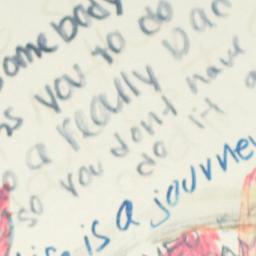 omebody
s you to do
a really ban
so you don't have
do it a
is a journe